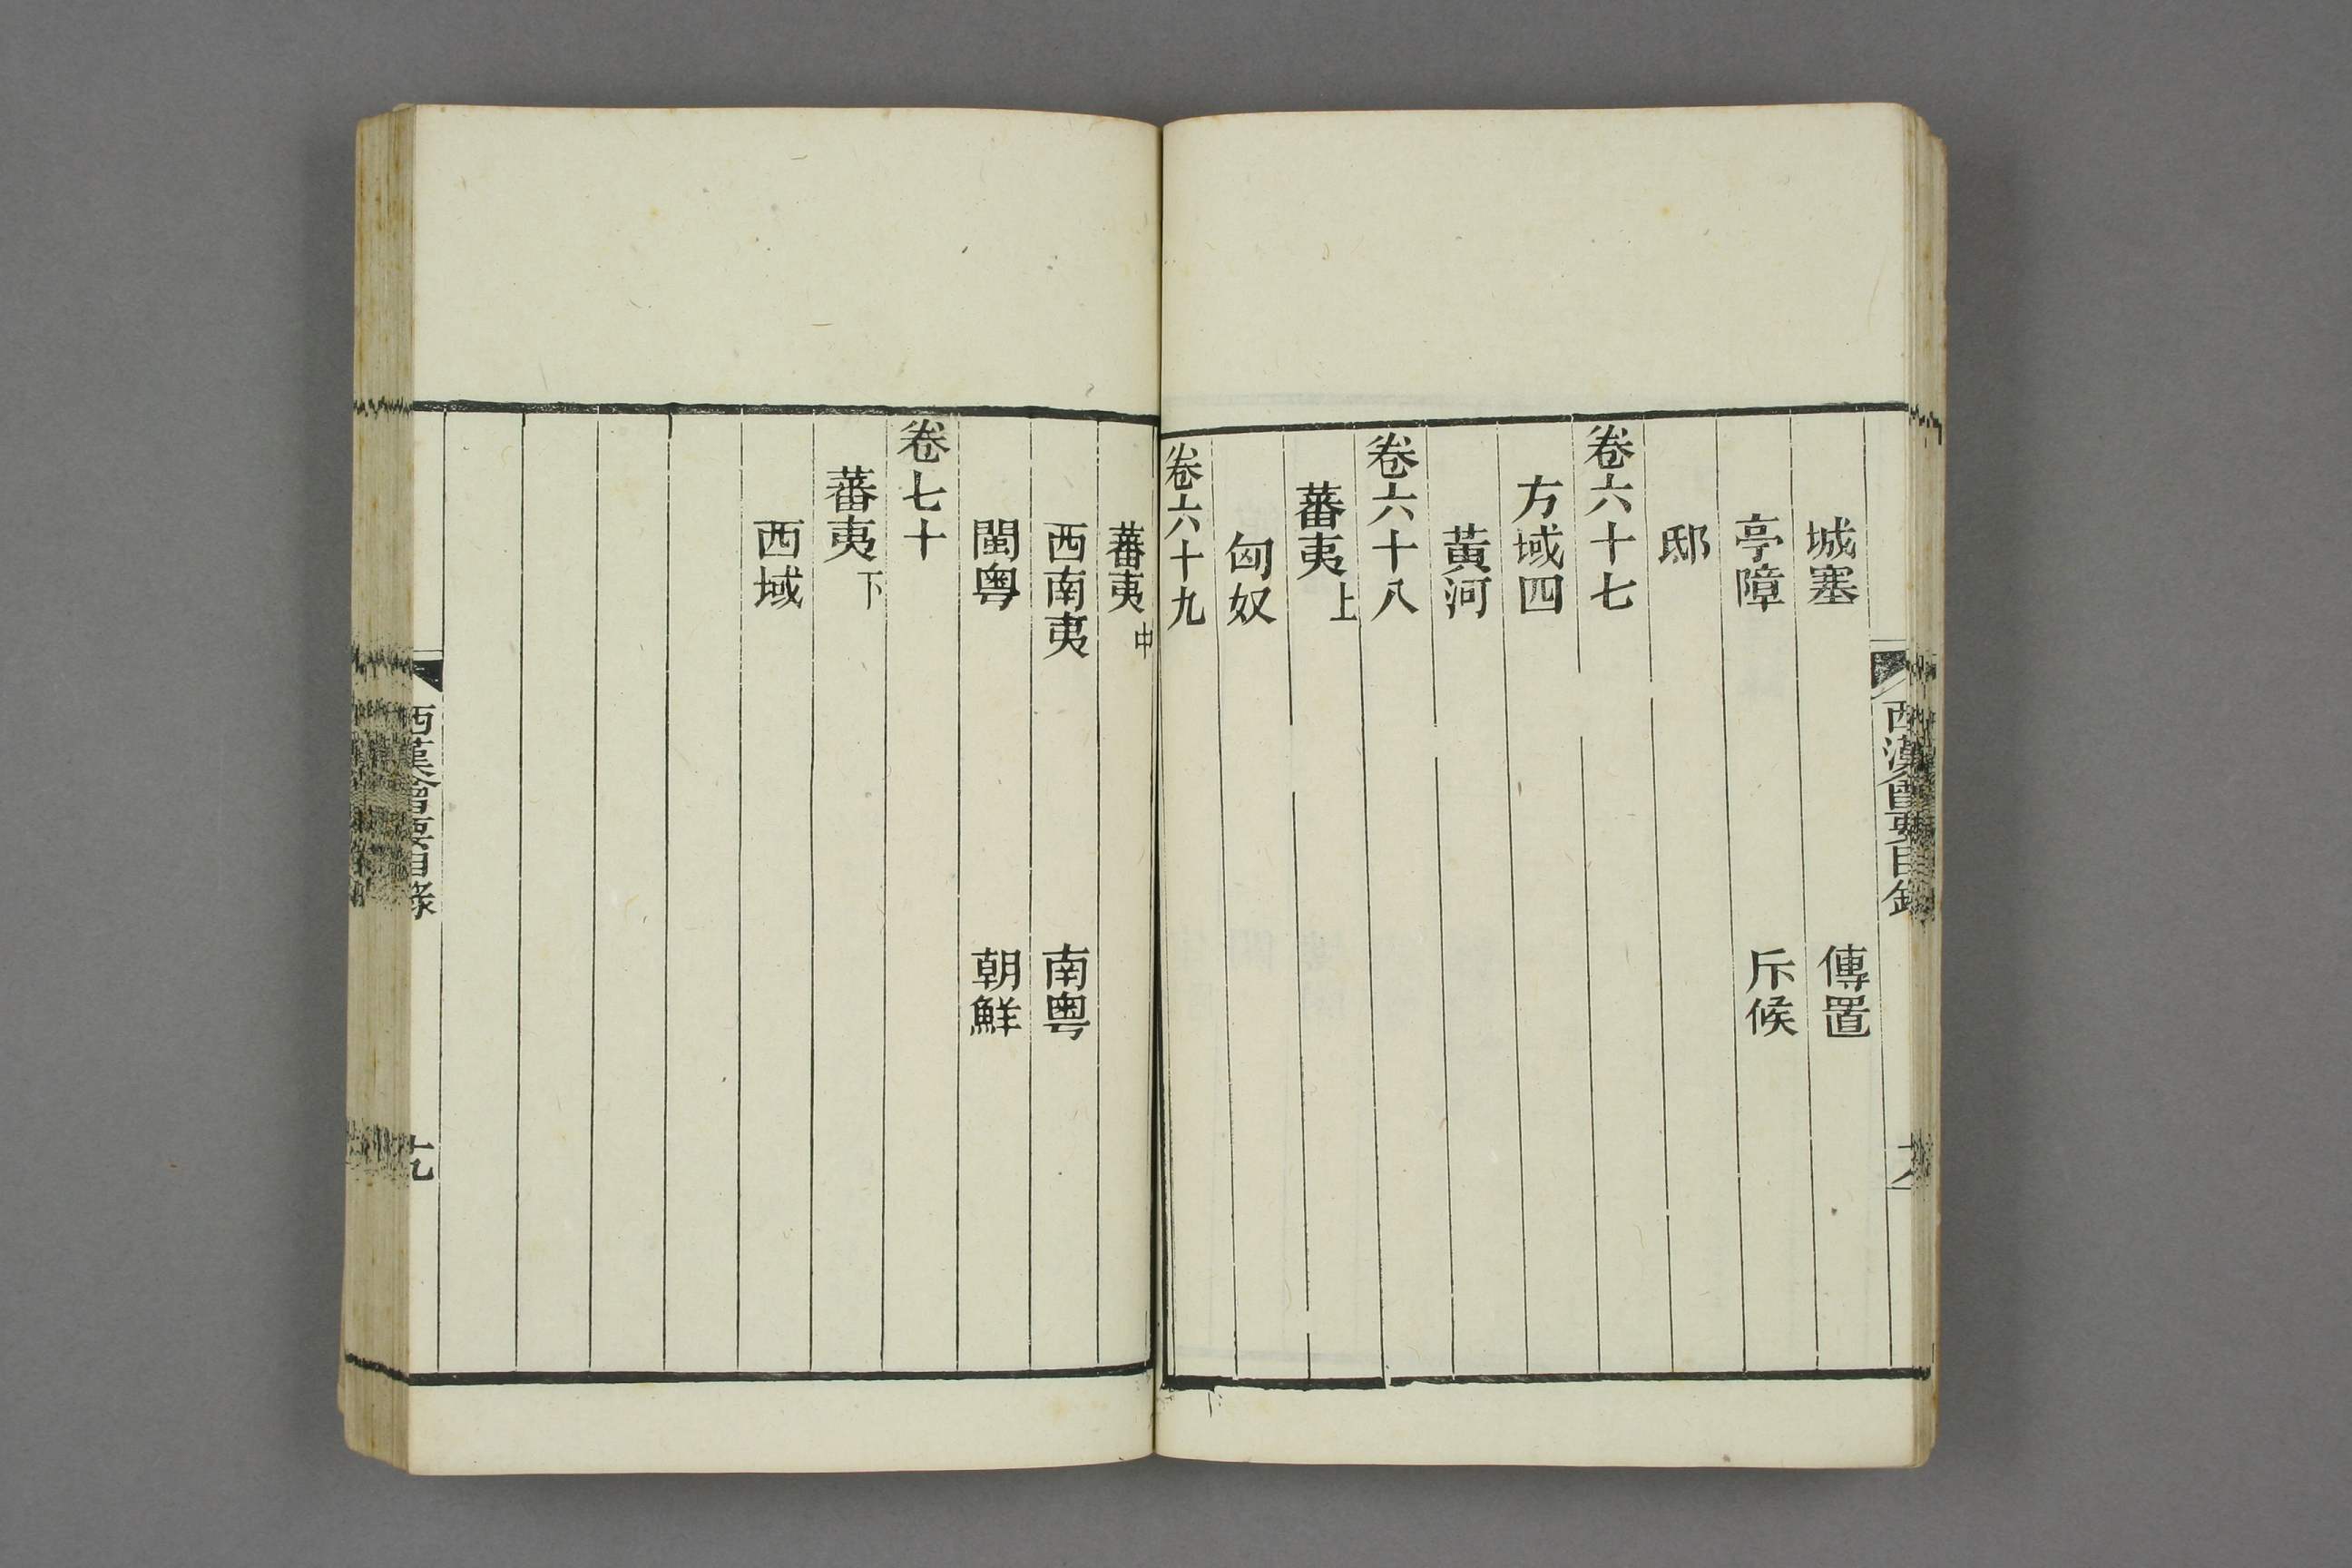 西漢會要目錄
十八
城塞 傳置
亭障 斥候
邸
卷六十七
方域四
黃河
卷六十八
蕃夷上
匈奴
卷六十九
蕃夷中
西南夷 南粵
閩粵 朝鮮
卷七十
蕃夷下
西域
西漢會要目錄
十九